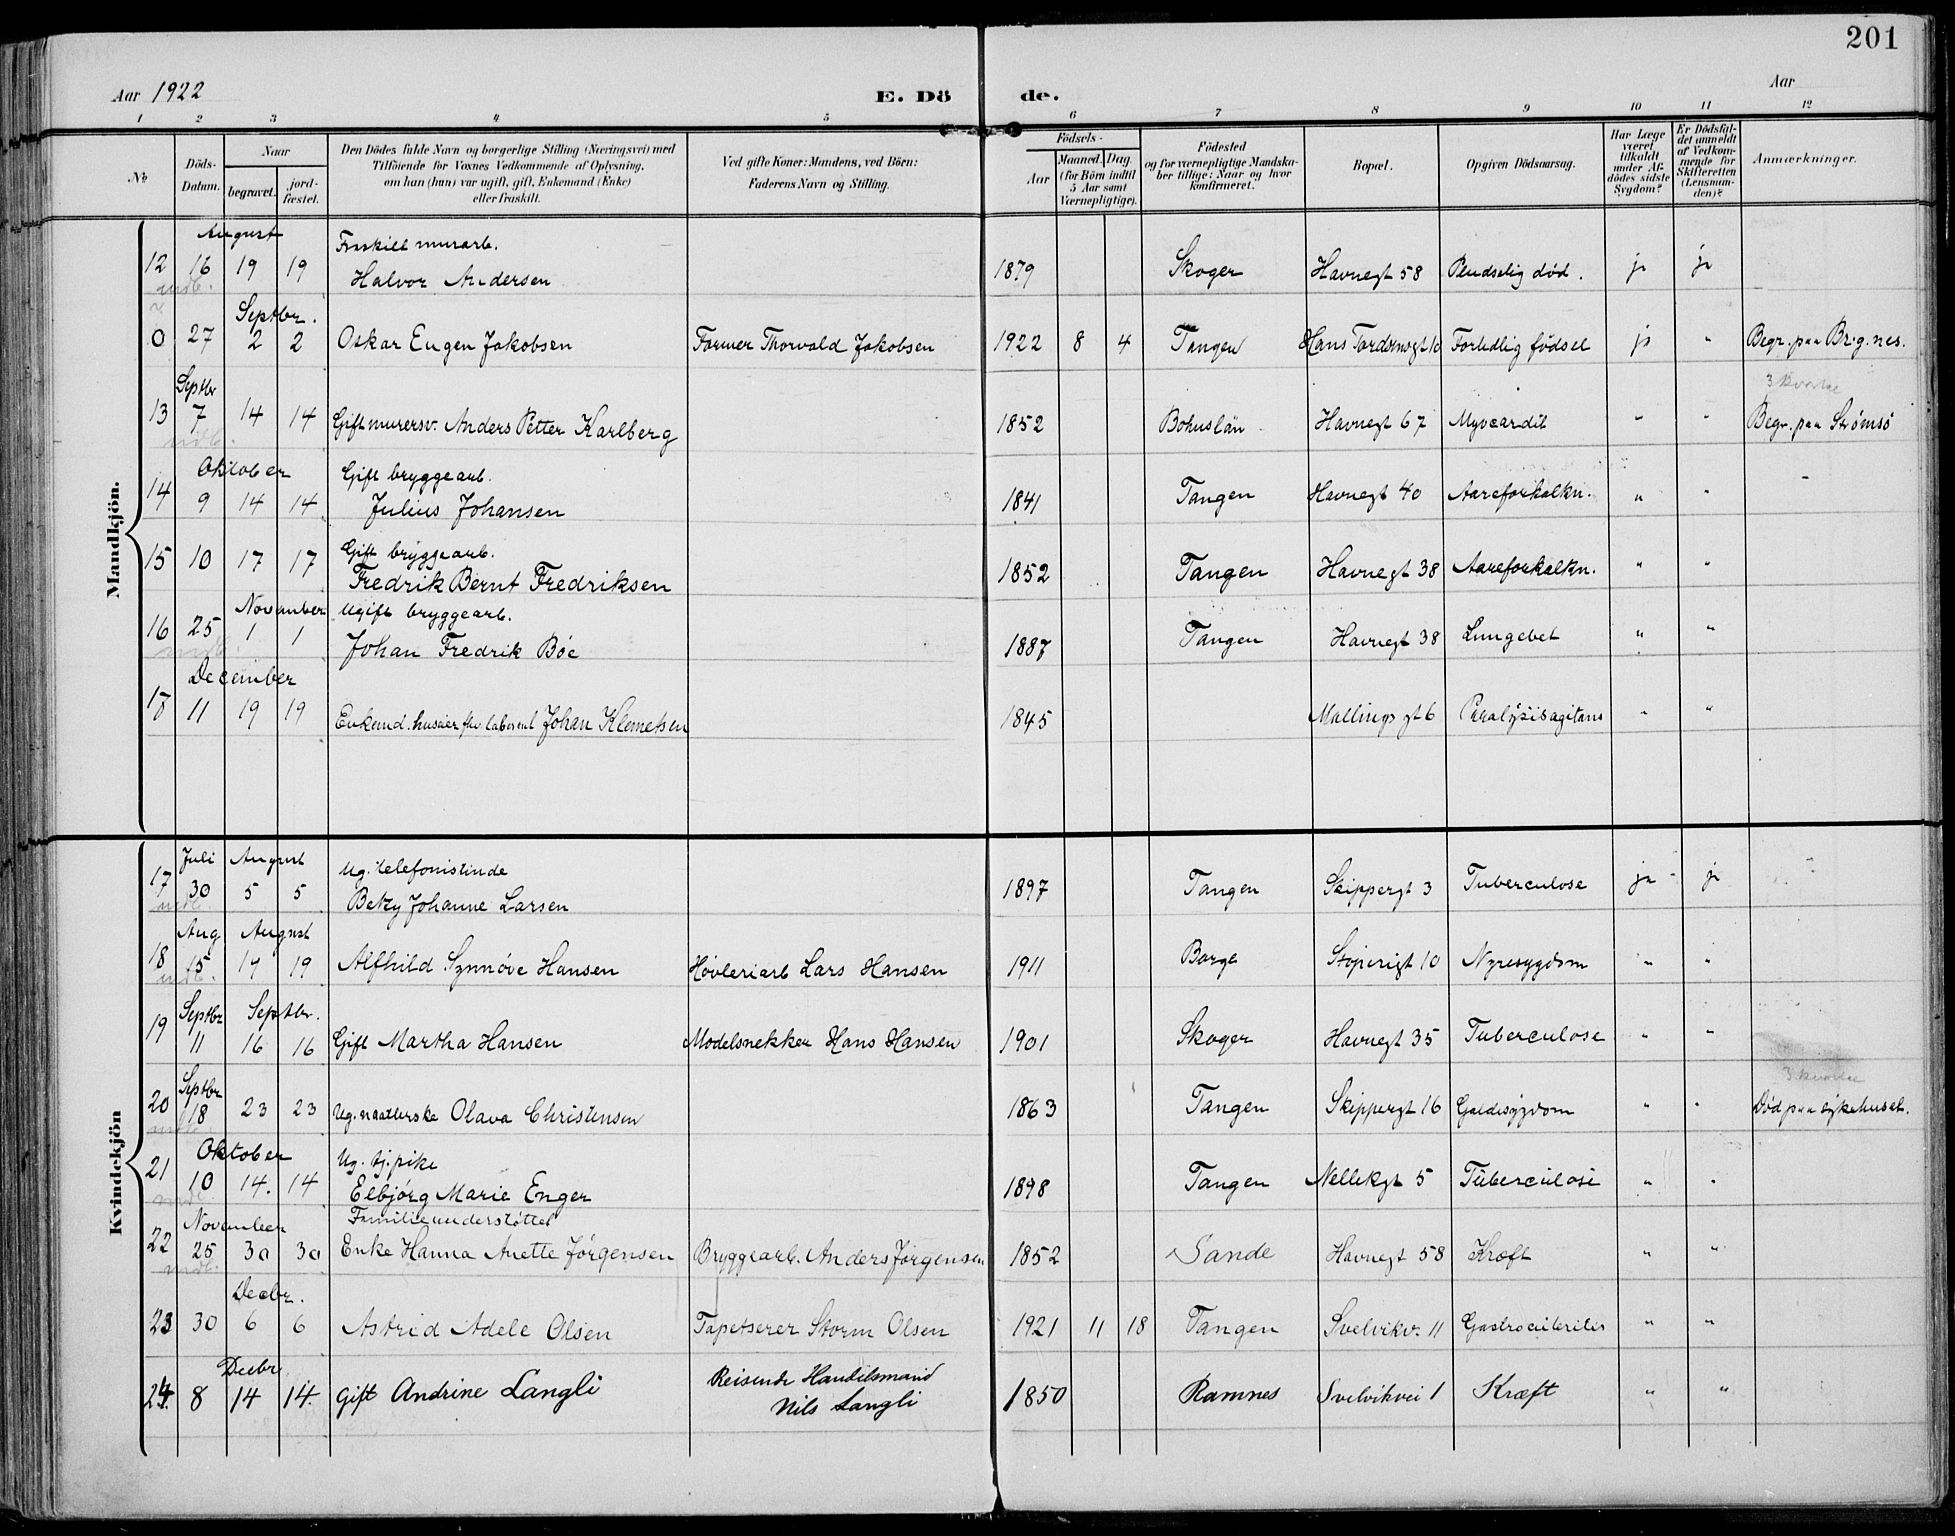 201
Aar 1922
E. Dö de.
Aar
1 2 3 4 5 6 7 8 9 10 11 12
No
Döds-Datum.
Naar
begravet. jordfæstet.
Den Dödes fulde Navn og borgerlige Stilling (Næringsvei) med
Tilföiende for Voxnes Vedkommende af Oplysning,
om han (hun) var ugift, gift, Enkemand (Enke)
eller fraskilt.
Ved gifte Koner: Mandens, ved Börn:
Faderens Navn og Stilling.
Födsels-
Aar
Maaned. Dag.
(for Börn indtil
5 Aar samt
Værnepligtige).
Födested
og for værnepligtige Mandska-
ber tillige: Naar og hvor
konfirmeret.
Bopæl.
Opgiven Dödsaarsag.
Har Læge
været
tilkaldt
under Af-
dödes sidste
Sygdom?
Er Dödsfal-
det anmeldt
af Vedkom-
mende for
Skifteretten
(Lensman-
den)?
Anmærkninger.
Mandkjön.
August Fraskilt murarb.
12 16 19 19 Halvor Andersen 1879 Skoger Havnegt 58 Pludselig død. ja ja
mdb.
Septbr.
0 27 2 2 Oskar Eugen Jakobsen Former Thorvald Jakobsen 1922 8 4 Tangen Fortidlig fødsel ja " Begr. paa Brg.nes.
Septbr
13 7 14 14 Gift murersv. Anders Petter Karlberg 1852 Bohuslän Havnegt 67 Myocardit " " Begr. paa Strømsö
mdb.
Oktober Gift bryggearb.
14 9 14 14 Julius Johansen 1841 Tangen Havnegt 40 Aareforkalkn. " "
Gift bryggearb.
15 10 17 17 Fredrik Bernt Fredriksen 1852 Tangen Havnegt 38 Aareforkalkn. " "
November Ugift bryggearb.
16 25 1 1 Johan Fredrik Böe 1887 Tangen Havnegt 38 Lungebet " "
mdb.
December
17 11 19 19 Enkemd. huseier fhv Johan Klemetsen 1845 Mallings gt 6 Paralysis agitans " "
Kvindekjön
Juli August Ug. telefonistinde
17 30 5 5 Betzy Johanne Larsen 1897 Tangen Skippergt 3 Tuberculose ja ja
mdb.
Aug August
18 15 19 19 Alfhild Synnöve Hansen Høvleriarb Lars Hansen 1911 Borge Støperigt 10 Nyresygdom " "
mdb.
Septbr Septbr.
19 11 16 16 Gift Martha Hansen Modelsnekker Hans Hansen 1901 Skoger Havnegt 35 Tuberculose " "
Septbr
20 18 23 23 Ug. Olava Christensen 1863 Tangen Skippergt 16 Galdesygdom " " Död paa sykehuset.
mdb.
Oktober Ug. tj.pike
21 10 14. 14 Elbjörg Marie Enger 1898 Tangen Nellikgt 5 Tuberculose " "
mdb.
November Familieunderstöttet
22 25 30 30 Enke Hanna Anette Jörgensen Bryggearb. Anders Jørgensen 1852 Sande Havnegt 58 Kræft " "
mdb.
Decbr.
23 30 6 6 Astrid Adele Olsen Tapetserer Storm Olsen 1921 11 18 Tangen Svelvikv. 11 Gastroenteritis " "
Decbr Reisende Handelsmand
24. 8 14 14. Gift Andrine Langli Nils Langli 1850 Ramnes Svelvikvei 1 Kræft " "